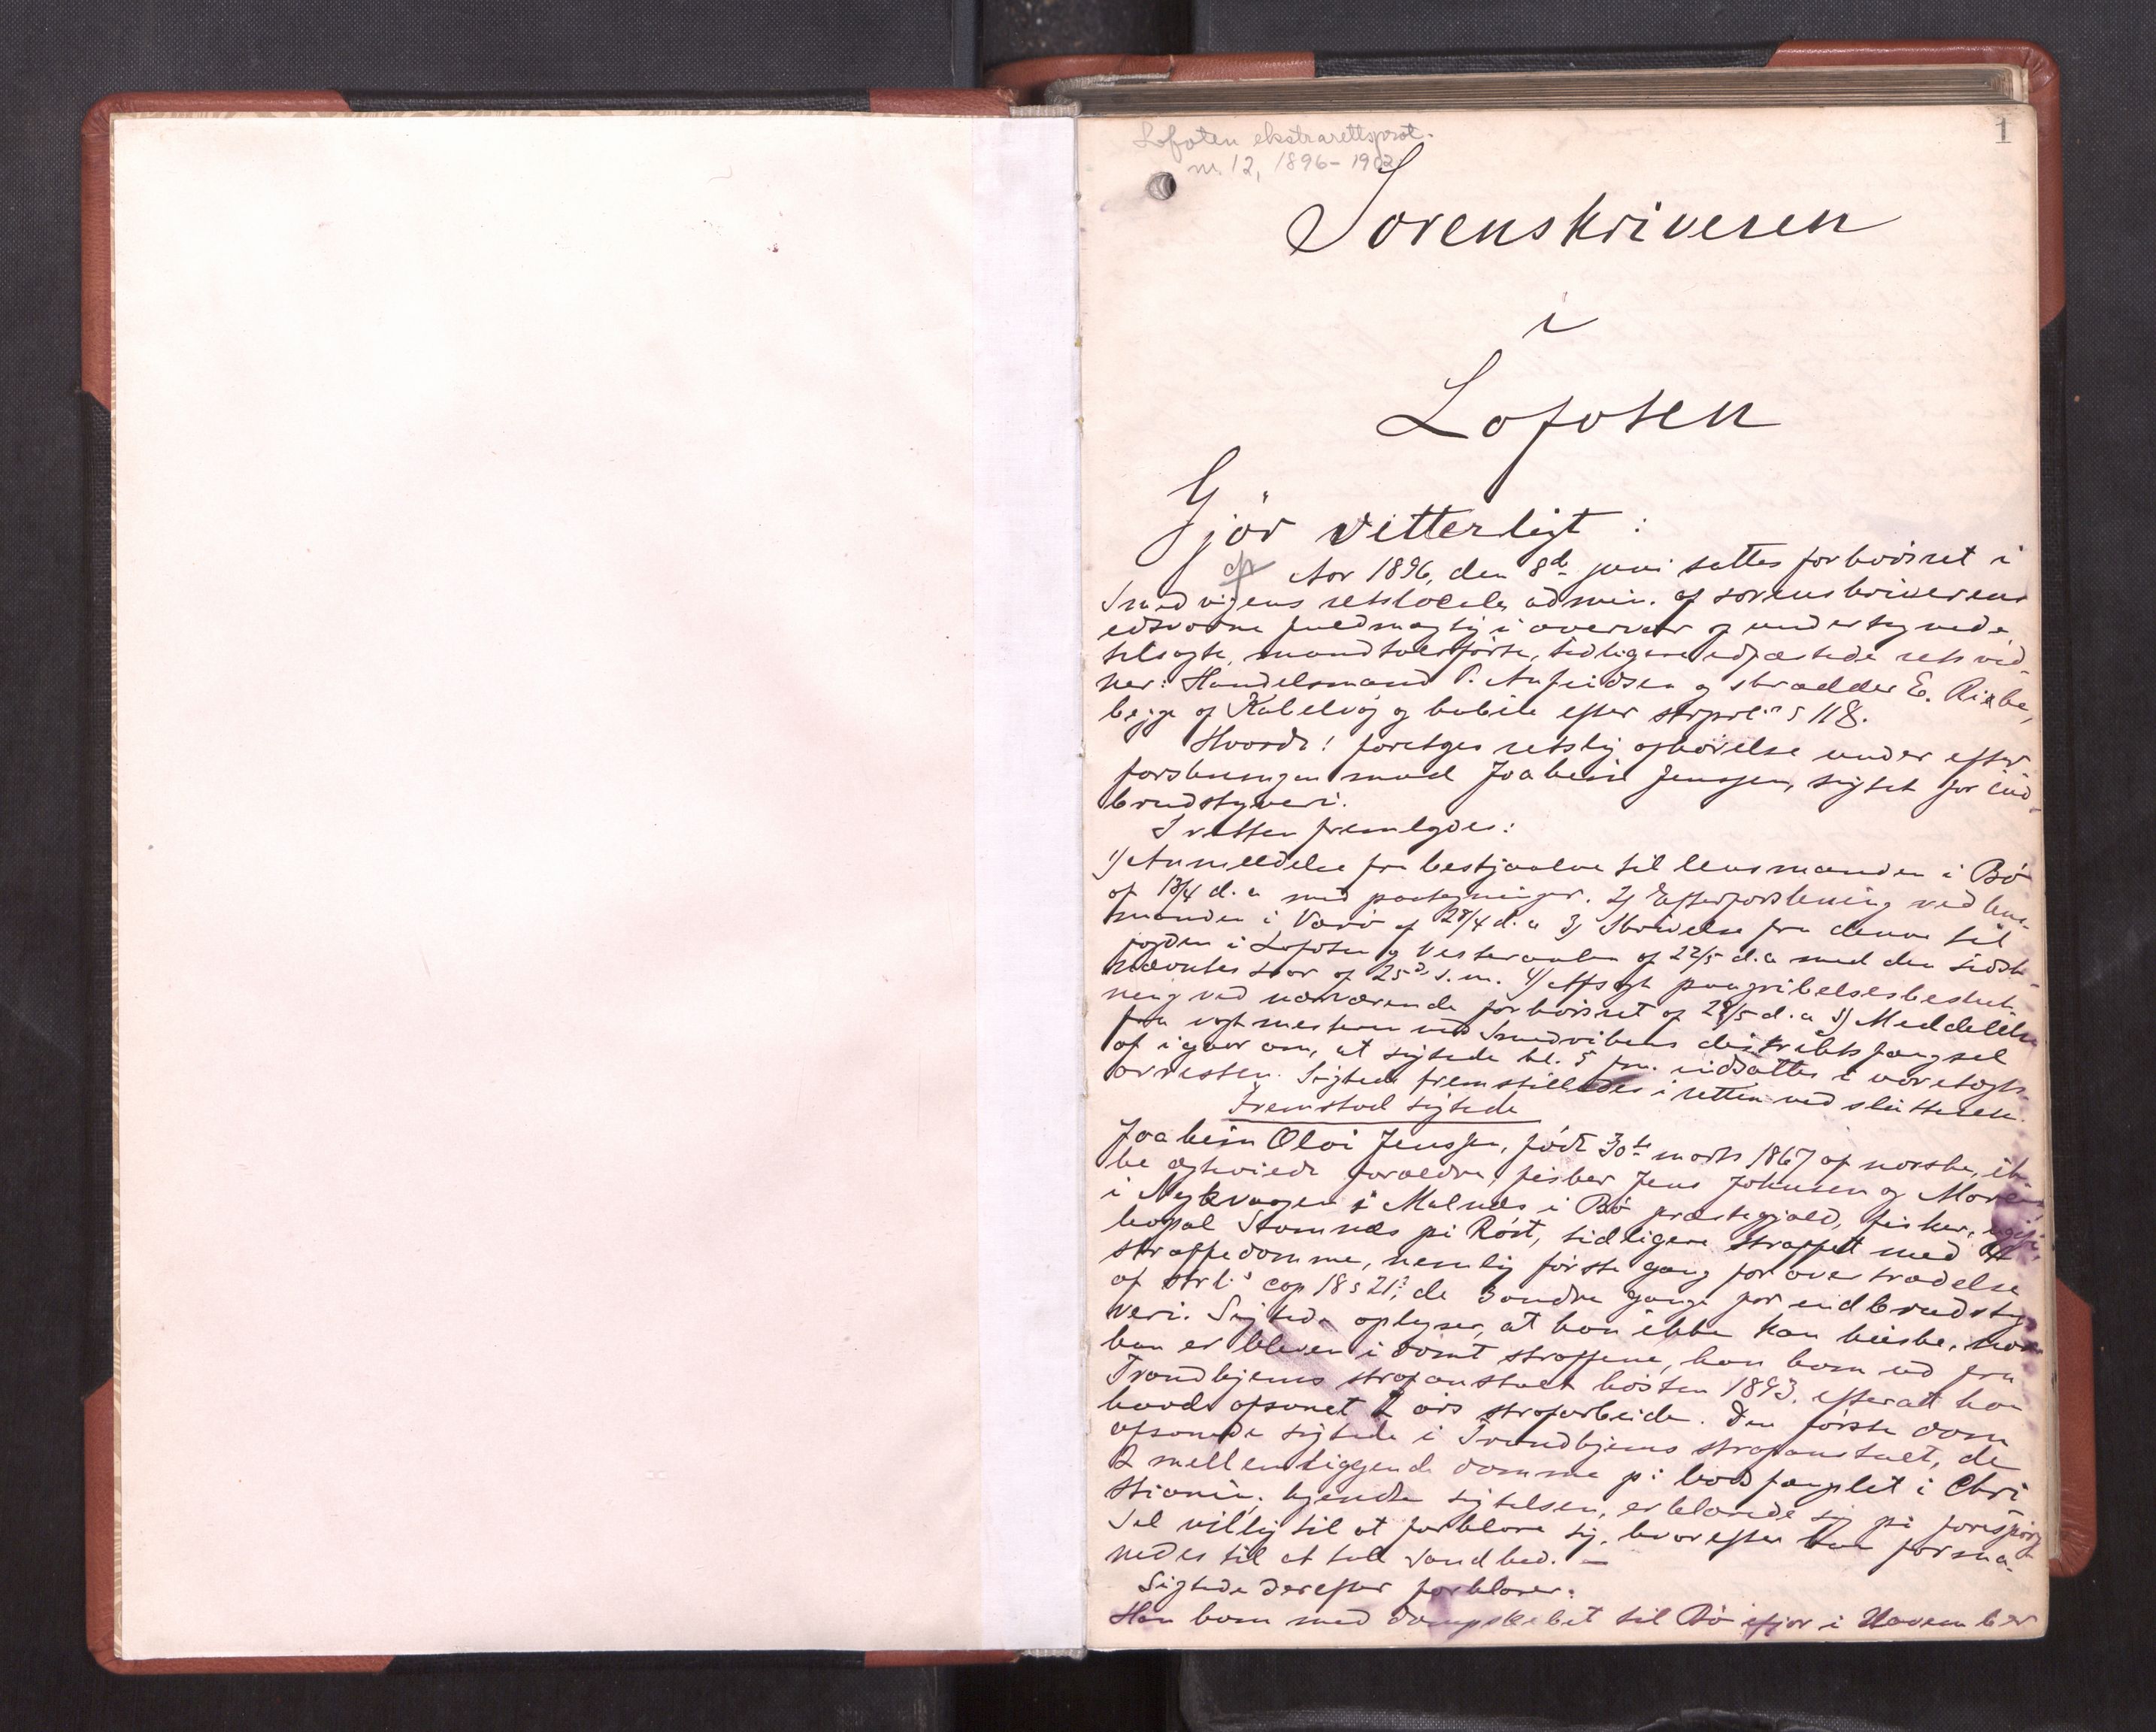 Lofoten ekstrarettsprot.
nr 12, 1896-1902
1
Sorenskriveren
i
Lofoten
Gjör vitterligt:
Aar 1896, den 8de juni sattes forhörsret i
Smedvigens retslocale, admin. af sorenskriverens
edsvorne fuldmægtig i overvær af undertegnede
tilsagte, mandtalsförte, tidligere edfæstede retsvid-
ner: Handelsmand P. Anfindsen og skrædder E. Riebe,
begge af Kabelvåg og habile efter strprl.s § 118.
Hvorda! foretages retslig afhörelse under efter-
forskningen mod Joakim Jenssen, sigtet for ind-
brudstyveri.
I retten fremlagdes:
1) Anmeldelse fra bestjaalne til lensmanden i Bö
af 13/4 d.a med paategninger. 2) Efterforskning ved lens-
manden i Værö af 28/4 d.a 3) Skrivelse fra denne til
fogden i Lofoten og Vesteraalen af 22/5 d.a med den sidst-
nævntes svar af 25de s.m. 4) Afsagt paagribelsesbeslut-
ning ved nærværende forhörsret af 28/5 d.a 5) Meddelelse
fra vagtmesteren ved Smedvikens distriktsfængsel
af igaar om, at sigtede kl. 5 fm. indsattes i varetægts-
arresten. Sigtede fremstilledes i retten ved slutteren.
Fremstod sigtede
Joakim Olai Jenssen, födt 30te marts 1867 af norske, ik-
ke ægteviede forældre, fisker Jens Johnsen og Maren
i Nykvaagen i Malnes i Bö præstegjæld, fisker, ugift,
bopæl Stamnæs på Röst, tidligere straffet med
straffedomme, nemlig förste gang for overtrædelse
af strl.s cap 18 § 21, de 3 andre gange for indbrudsty-
veri. Sigtede oplyser, at han ikke kan huske, naar
han er bleven idömt straffene, han kom ud fra
Trondhjems strafanstalt hösten 1893, efterat han
havde afsonet 2 års strafarbeide. Den förste dom
afsonede sigtede i Trondhjems strafanstalt, de
2 mellemliggende domme på bodsfængslet i Chri-
stiania; kjendte sigtelsen, erklærede sig på forespörg-
sel villig til at forklare sig, hvorefter han forma-
nedes til at tale sandhed. —
Sigtede derefter forklarer:
Han kom med dampskibet til Bö ifjor i November